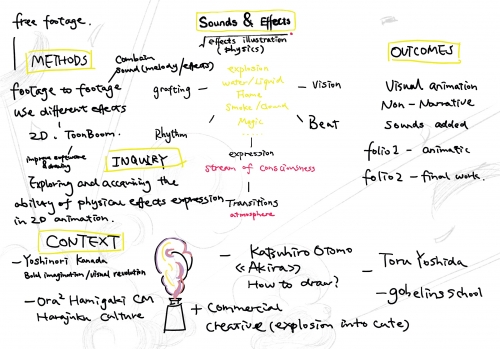 free footage.
Sounds & Effects
effects illustration
(physics)
METHODS
Combain
Sound (melody/effects)
footage to footage
grafting
Use different effects
2D. ToonBoom.
Rhythm
improve software
explosion
water/Liquid
Flame
Smoke/Cloud
Magic
Vision
Beat
expression
stream of consciousness
Transitions
atmosphere
OUTCOMES
Visual animation
Non-Narrative
Sounds added
folio2 - animatic
folio2 - final work.
INQUIRY
Exploring and acquiring the
ability of physical effects expression
in 2D animation.
CONTEXT
- Yoshinori Kanada
Bold imagination/visual revolution
- Ora² Hamigaki CM
Harajuku Culture
- Katsuhiro Otomo
«Akira»
How to draw?
+ Commercial
creative (explosion into cute)
- Toru Yoshida
- gobelins school